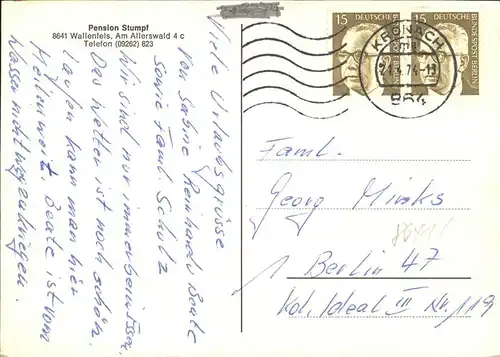 Pension Stumpf
8641 Wallenfels, Am Allerswald 4 c
Telefon (09262) 823
Viele Urlaubsgrüsse
von Sabine Reinhardt Beate
sowie Faml. Schulz
Wir sind nur immer beim Essen.
Das Wetter ist noch schön.
Laufen kann man hier
Meilenweit. Beate ist vom
Wasser nicht wegzukriegen.
15 DEUTSCHE BUNDESPOST BERLIN
15 DEUTSCHE BUNDESPOST BERLIN
KRONACH
864
Faml.
Georg
1 Berlin 47
Kol. Ideal III Nr. 119